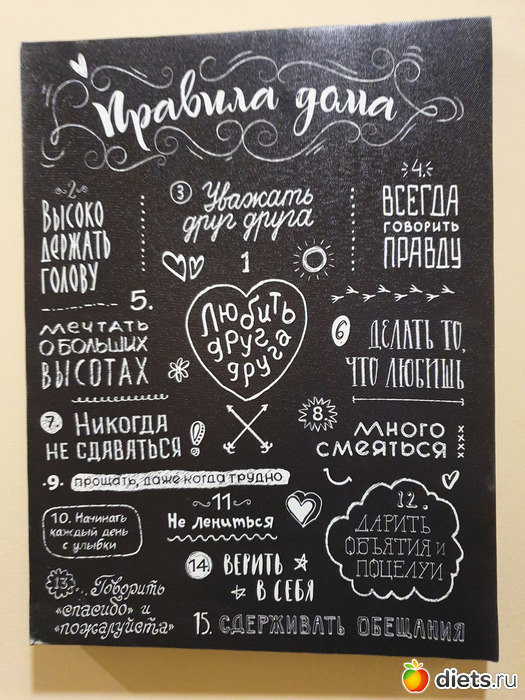 Правила дома
2
ВЫСОКО
ДЕРЖАТЬ
ГОЛОВУ
3 Уважать
друг друга
4.
ВСЕГДА
ГОВОРИТЬ
ПРАВДУ
1
Любить
друг
друга
5.
МЕЧТАТЬ
О БОЛЬШИХ
ВЫСОТАХ
6 ДЕЛАТЬ ТО,
ЧТО ЛЮБИШЬ
7. Никогда
не сдаваться!
8.
МНОГО
СМЕЯТЬСЯ
.9. прощать, даже когда трудно
10. Начинать
каждый день
с улыбки
11
Не лениться
12.
ДАРИТЬ
ОБЪЯТИЯ И
ПОЦЕЛУИ
13... Говорить
«спасибо» и
«пожалуйста»
14. ВЕРИТЬ
В СЕБЯ
15. СДЕРЖИВАТЬ ОБЕЩАНИЯ
diets.ru